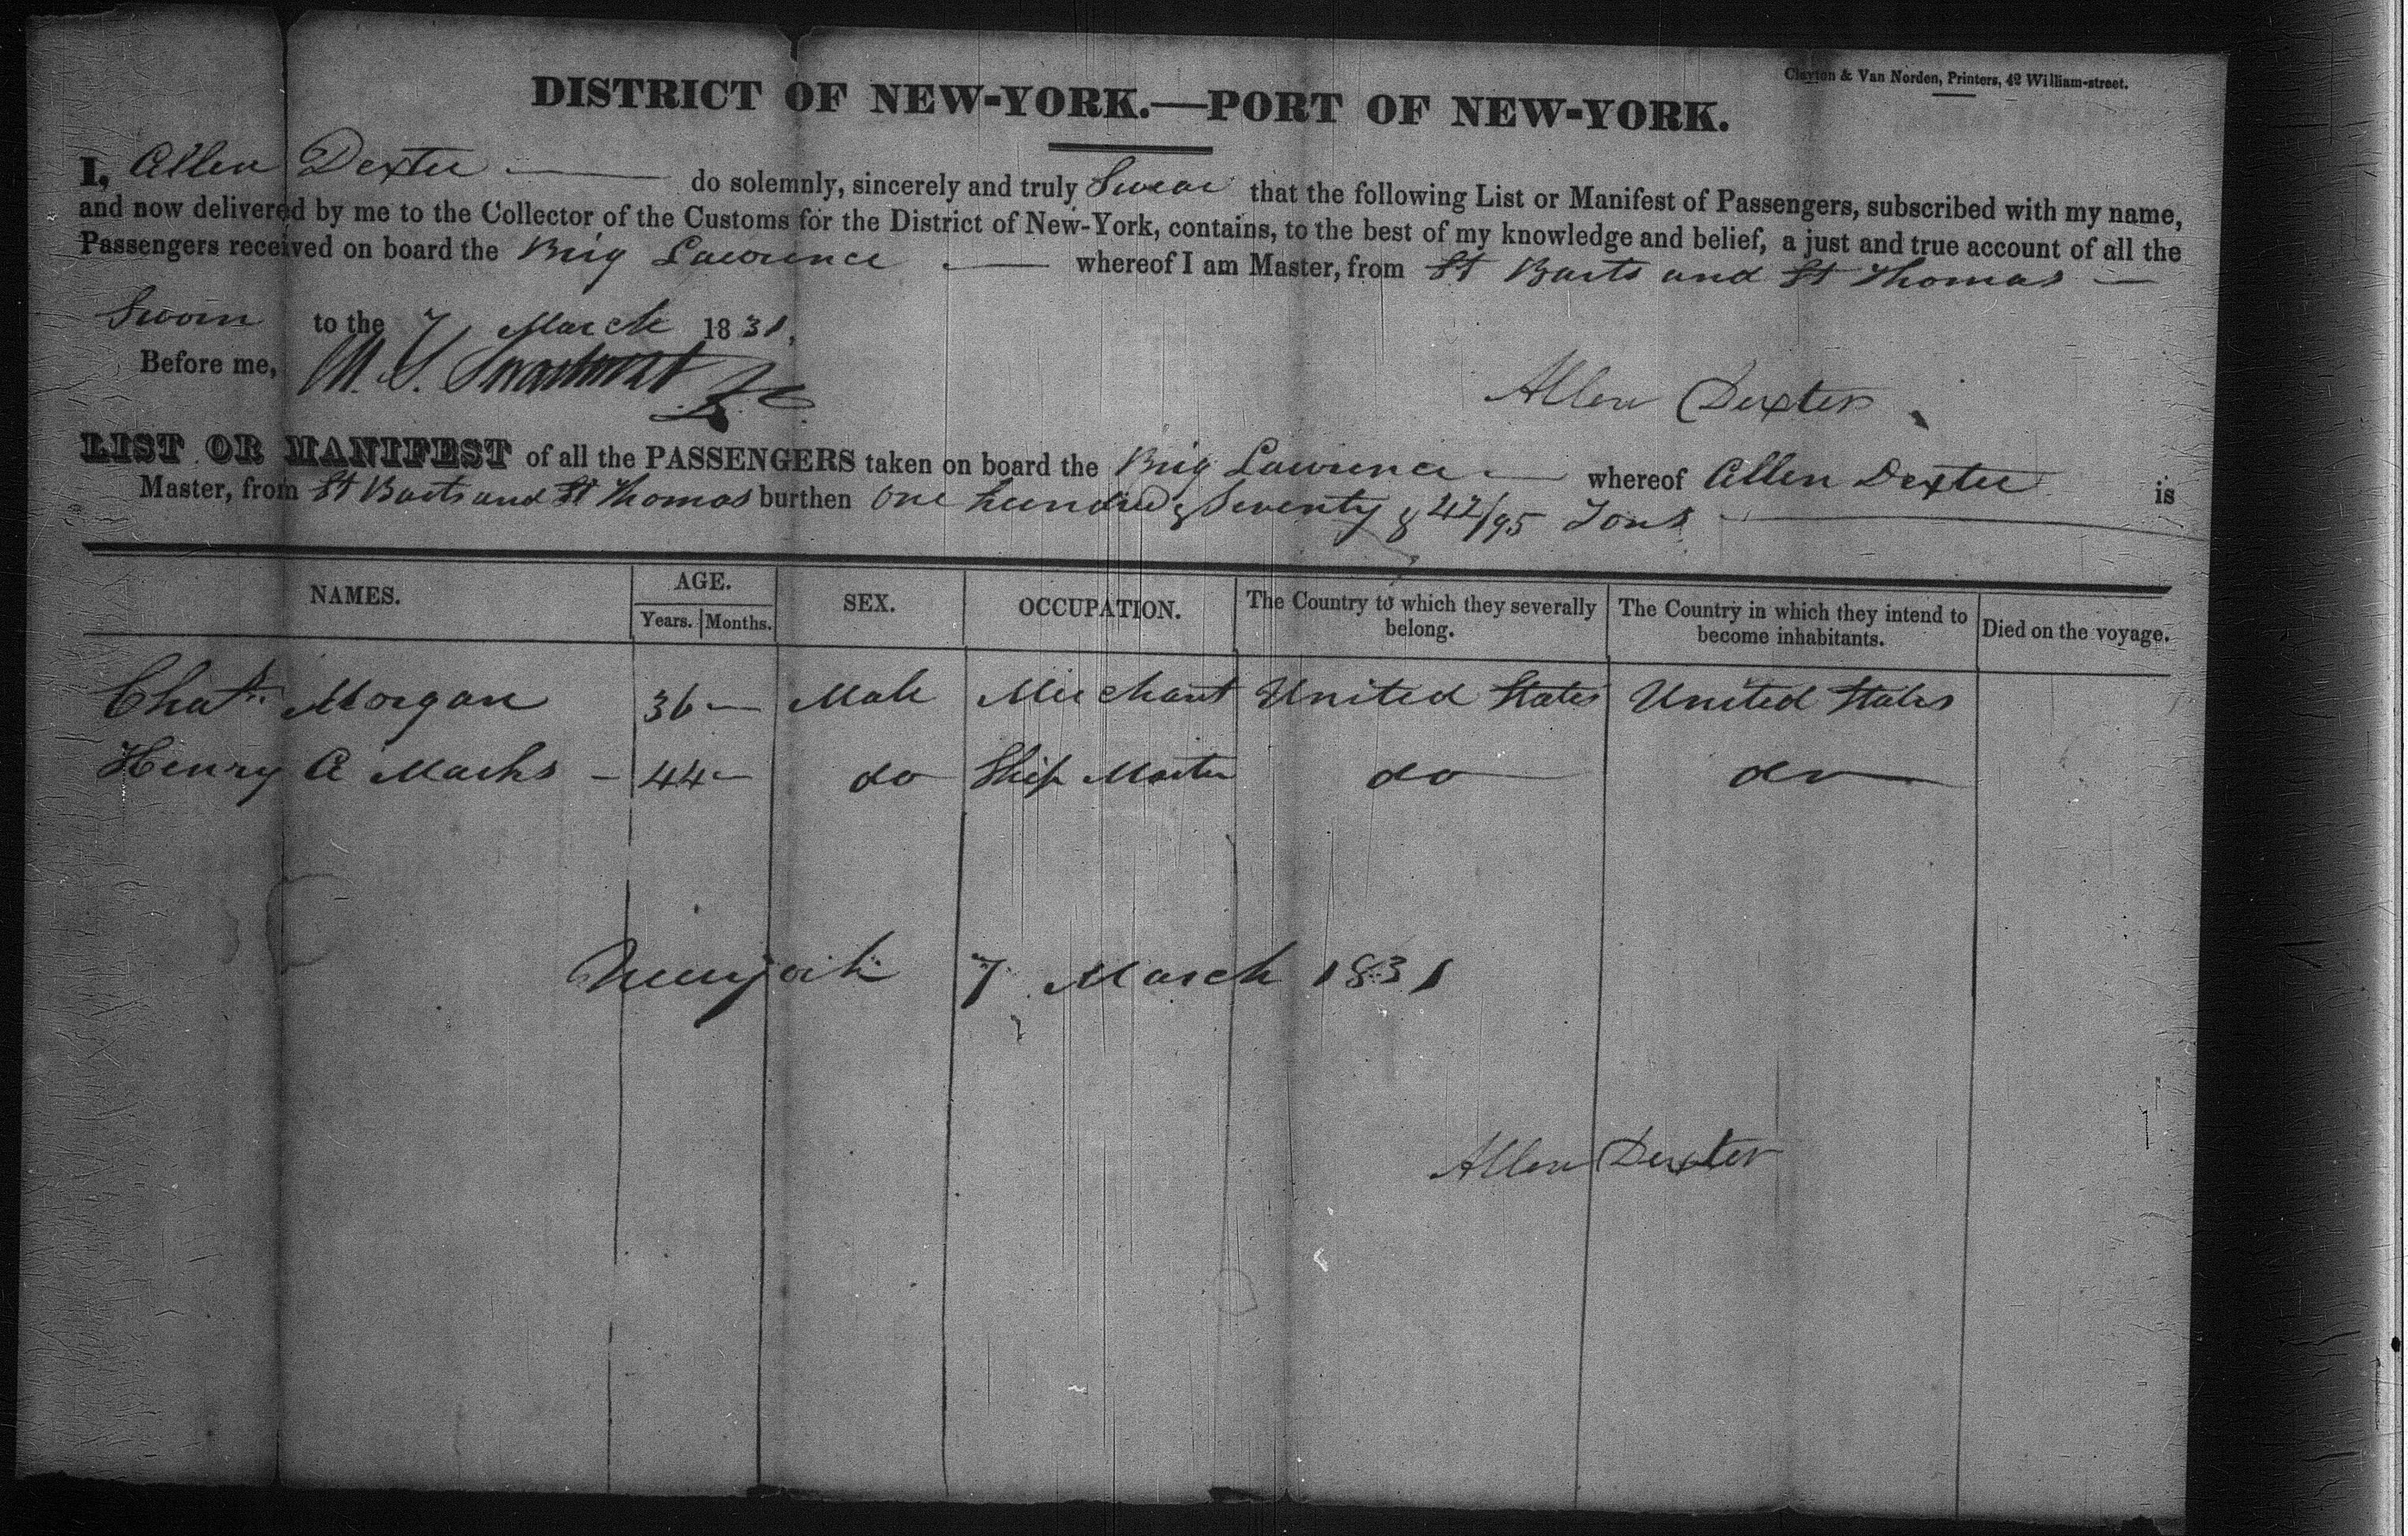 Clayton & Van Norden, Printers, 42 William-street.
DISTRICT OF NEW-YORK.—PORT OF NEW-YORK.
I, Allen Dexter do solemnly, sincerely and truly Swear that the following List or Manifest of Passengers, subscribed with my name,
and now delivered by me to the Collector of the Customs for the District of New-York, contains, to the best of my knowledge and belief, a just and true account of all the
Passengers received on board the Brig Lawrence whereof I am Master, from St Barts and St Thomas
Sworn to the 7 March 1831,
Before me,
Allen Dexter
LIST OR MANIFEST of all the PASSENGERS taken on board the Brig Lawrence whereof Allen Dexter is
Master, from St Barts and St Thomas burthen One hundred & Seventy & 42/95 Tons
NAMES. AGE. Years. Months. SEX. OCCUPATION. The Country to which they severally belong. The Country in which they intend to become inhabitants. Died on the voyage.
Morgan 36 Male Merchant United States United States
Henry A Marks 44 do Ship Master do do
Newyork 7 March 1831
Allen Dexter